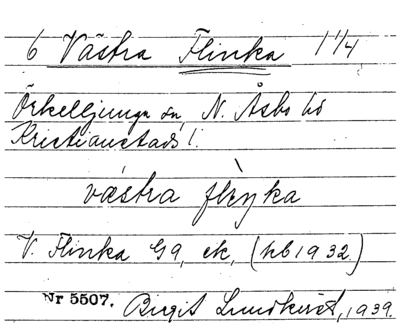 6 Västra Flinka 1 1/4
Örkelljunga sn, N. Åsbo hd
Kristianstads l.
västra fliŋka
V. Flinka G9, ek, (kb 1932)
Nr 5507. Birgit Lundkvist, 1939.